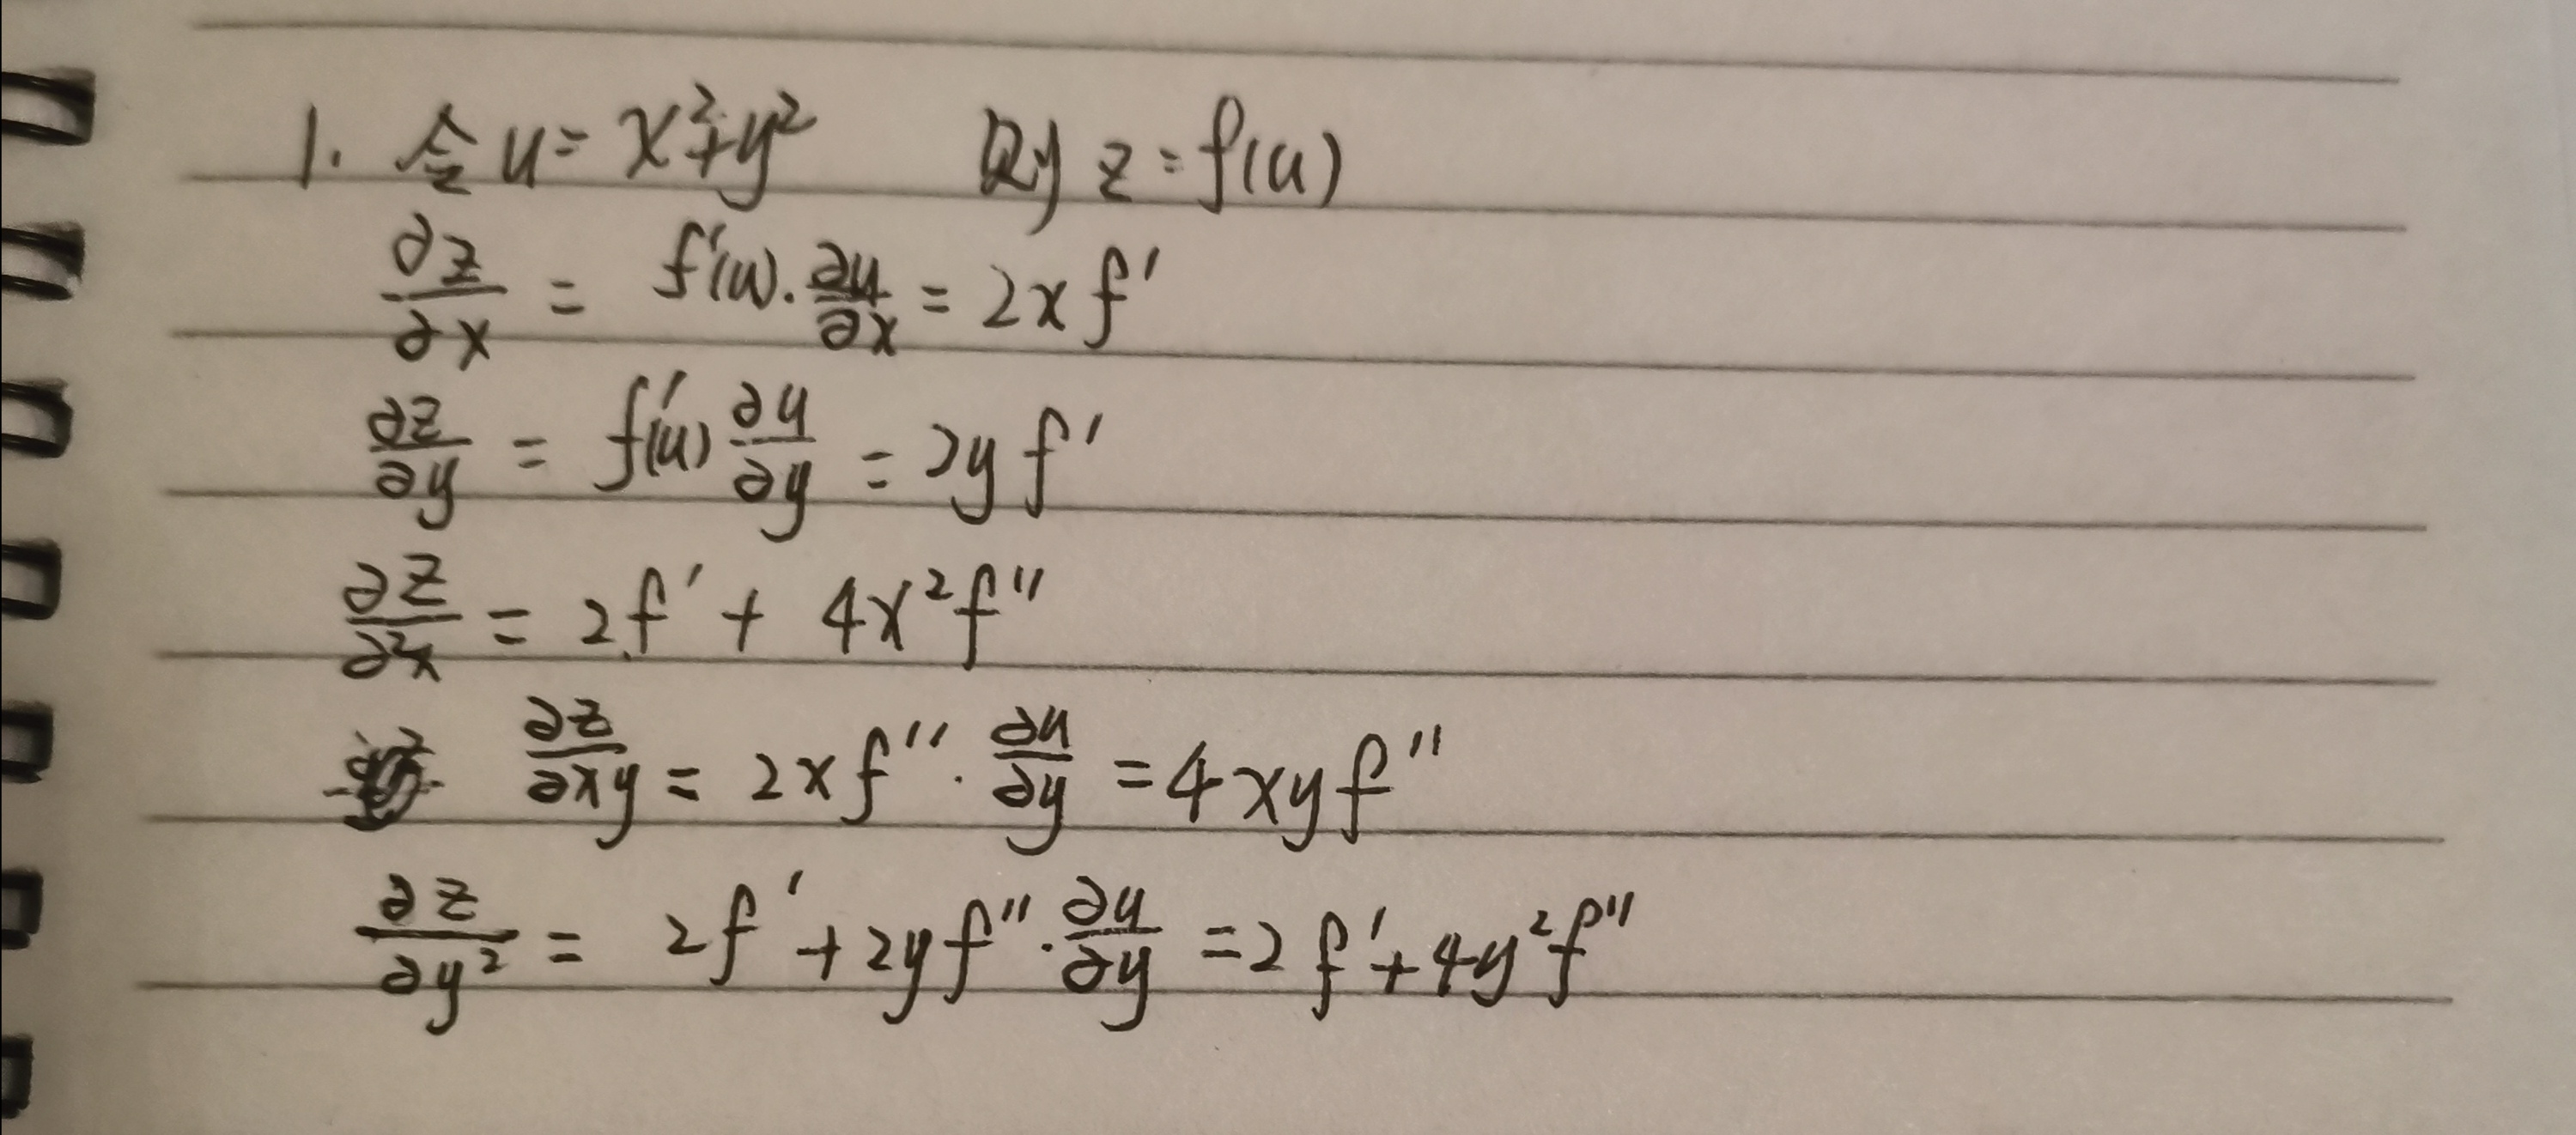 1. 令 u = x²+y² 则 z = f(u)
∂z/∂x = f'(u)·∂u/∂x = 2xf'
∂z/∂y = f'(u) ∂u/∂y = 2yf'
∂z/∂²x = 2f' + 4x²f''
∂z/∂xy = 2xf''·∂u/∂y = 4xyf''
∂z/∂y² = 2f' + 2yf''·∂u/∂y = 2f' + 4y²f''